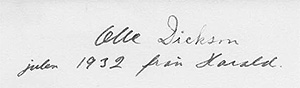 Olle Dickson
julen 1932 från Harald.